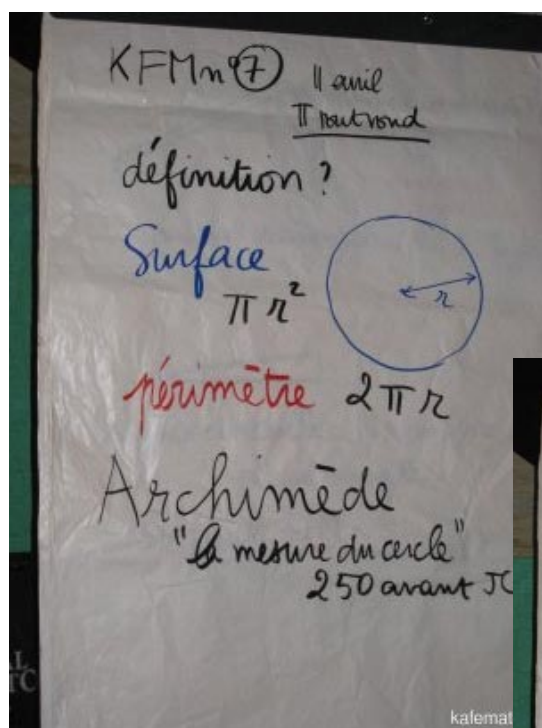 KFM n° 7
11 avril
π tout rond
définition ?
Surface
π r²
r
périmètre 2 π r
Archimède
"la mesure du cercle"
250 avant JC
kafemath